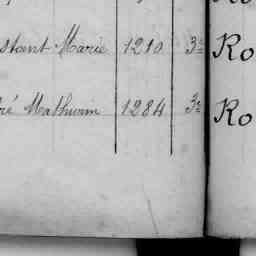 stant Marie 1210 3e Ro
ré Mathurin 1284 3e Ro